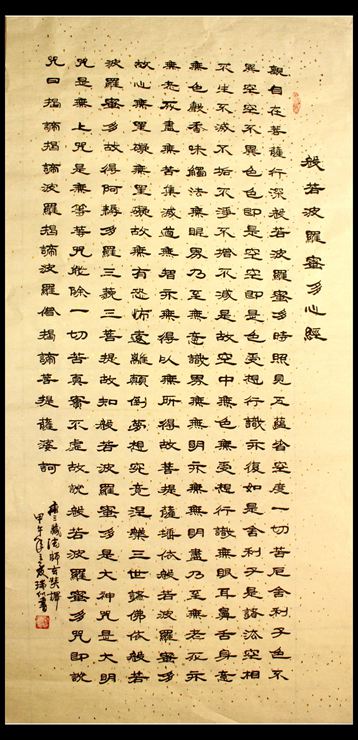 般若波羅蜜多心經
觀自在菩薩行深般若波羅蜜多時照見五蘊皆空度一切苦厄舍利子色不
異空空不異色色即是空空即是色受想行識亦復如是舍利子是諸法空相
不生不滅不垢不淨不增不減是故空中無色無受想行識無眼耳鼻舌身意
無色聲香味觸法無眼界乃至無意識界無無明亦無無明盡乃至無老死亦
無老死盡無苦集滅道無智亦無得以無所得故菩提薩埵依般若波羅蜜多
故心無罣礙無罣礙故無有恐怖遠離顛倒夢想究竟涅槃三世諸佛依般若
波羅蜜多故得阿耨多羅三藐三菩提故知般若波羅蜜多是大神咒是大明
咒是無上咒是無等等咒能除一切苦真實不虛故說般若波羅蜜多咒即說
咒曰揭諦揭諦波羅揭諦波羅僧揭諦菩提薩婆訶
唐三藏法師玄奘譯
甲午年之夏書